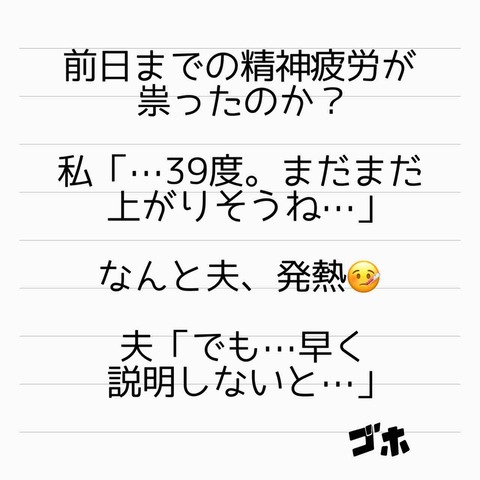 前日までの精神疲労が
祟ったのか？
私「…39度。まだまだ
上がりそうね…」
なんと夫、発熱🤒
夫「でも…早く
説明しないと…」
ゴホ